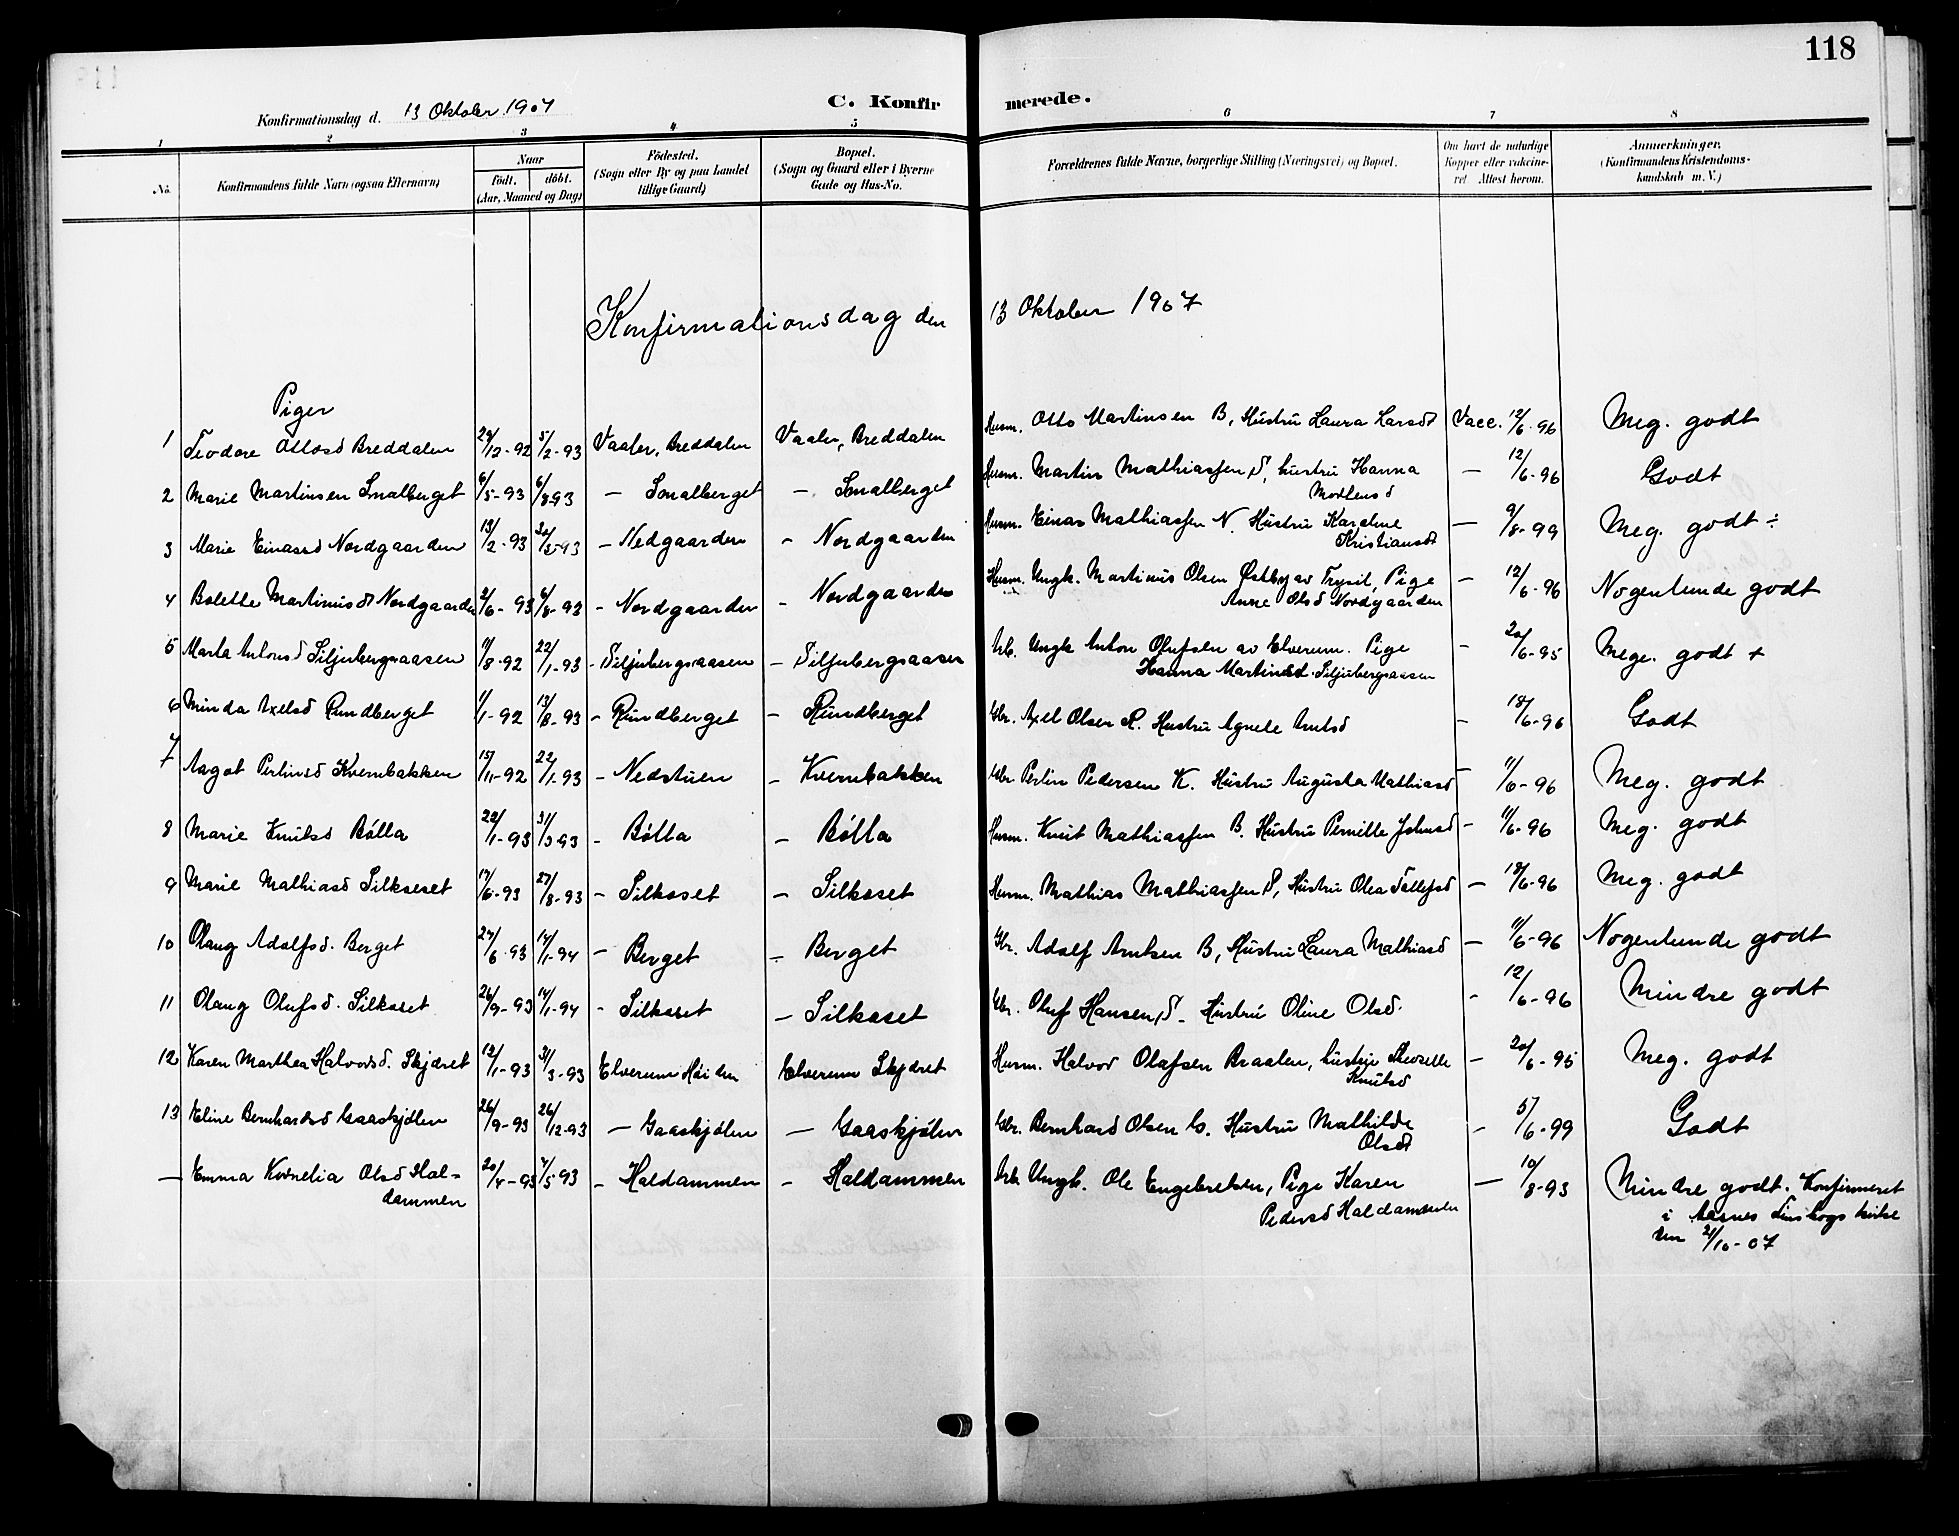 118
Konfirmationsdag d. 13 Oktober 1907 C. Konfirmerede.
1 2 3 4 5 6 7 8
No. Konfirmandens fulde Navn (ogsaa Efternavn) Naar født. døbt. (Aar, Maaned og Dag) Födested. (Sogn eller By og paa Landet tillige Gaard) Bopæl. (Sogn og Gaard eller i Byerne Gade og Hus-No. Forældrenes fulde Navne, borgerlige Stilling (Næringsvei) og Bopæl. Om havt de naturlige Kopper eller vakcineret. Attest herom. Anmerkninger. (Konfirmandens Kristendomskundskab m. V.)
Konfirmationsdag den 13 Oktober 1907
Piger
1 Teodore Ottosd Breddalen 29/12-92 5/2-93 Vaaler, Breddalen Vaaler, Breddalen Husm. Otto Martinsen B, Hustru Laura Larsdt Vacc. 12/6-96 Meg. godt
2 Marie Martinsen Smalberget 6/5-93 6/8-93 — Smalberget — Smalberget Husm. Martin Mathiassen S, hustru Hanna — 12/6-96 Godt
Mortensd
3 Marie Einarsd Nordgaarden 13/2-93 – Nedgaarden – Nordgaarden Husm. Einar Mathiassen N. Hustru Karoline — 9/8-99 Meg. godt ÷
Kristiansdt
4 Bolette Martinusdt Nordgaarden 2/6-93 6/8-93 – Nordgaarden – Nordgaarden Husm. Ungk. Martinus Olsen Østby av Trysil, Pige – 12/6-96 Nogenlunde godt
Anne Olsd Nordgaarden
5 Marta Antonsd Siljubergsaasen 11/8-92 22/1-93 - Siljubergsaasen – Siljubergsaasen Arb. Ungk Anton Olufsen av Elverum. Pige - 20/6-95 Meget godt +
Hanna Martinsd. Siljubergsaasen
6 Minda Axelsd Rundberget 1/1-92 13/8-93 – Rundberget – Rundberget Gbr. Axel Olsen R. Hustru Agnete Arntsd – 18/6-96 Godt
7 Aagot Perlinsd Kvernbakken 15/11-92 22/1-93 – Nedstuen – Kvernbakken Gbr Perlin Pedersen K. Hustru Augusta Mathiasd – 11/6-96 Meg. godt
8 Marie Knutsd Bölla 22/1-93 31/3-93 – Bölla – Bölla Husm. Knut Mathiassen B. Hustru Pernille Johnsd – 11/6-96 Meg. godt
9 Marie Mathiasd Silkeset 17/6-93 27/8-93 – Silkeset – Silkeset Husm. Mathias Mathiassen S, Hustru Olea Tollefsd – 18/6-96 Meg. godt
10 Olaug Adolfsd. Berget 27/6-93 14/1-94 – Berget – Berget Gbr. Adolf Arntsen B, Hustru Laura Mathiasd – 11/6-96 Nogenlunde godt
11 Olaug Olufsd. Silkeset 26/9-93 14/1-94 - Silkeset – Silkeset Gbr. Oluf Hansen, S. Hustru Oline Olsd. - 12/6-96 Mindre godt
12 Karen Marthea Halvorsd. Skjæret 12/1-93 31/3-93 Elverum Heiden Elverum Skjæret Husm. Halvor Olafsen Braaten, hustru – 20/6-95 Meg. godt
Knutsd
13 Eline Bernhardsd Gaaskjølen 26/9-93 26/12-93 – Gaaskjølen — Gaaskjølen Gbr. Bernhard Olsen G. Hustru Mathilde – 5/6-99 Godt
Olsdt
— Emma Kornelia Olsd Hal- 20/4-93 7/5-93 – Haldammen – Haldammen Arb. Ungk. Ole Engebretsen, Pige Karen — 10/8-93 Mindre godt. Konfirmeret
dammen Pedersd Haldammen i Aasnes Finskogs kirke
den 21/10-07